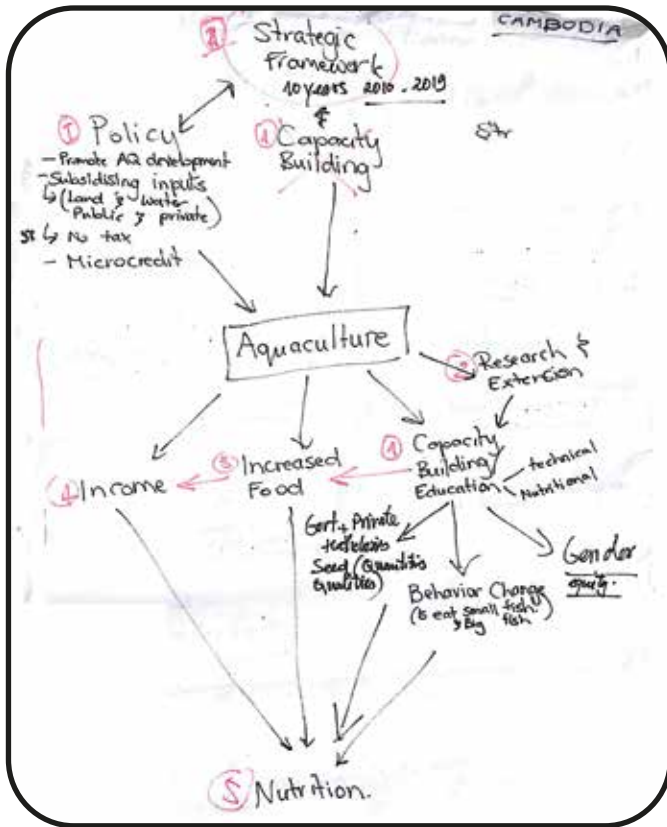 CAMBODIA
Strategic
Framework
10 years 2010 - 2019
Str
1 Policy
- Promote AQ development
- Subsidising inputs
↳ (Land & water
Public & private)
↳ No tax
- Microcredit
1 Capacity
Building
Aquaculture
2 Research &
Extension
1 Capacity
Building
Education
technical
Nutritional
3 Increased
Food
4 Income
Govt + Private
Seed (Quantitis
Qualities)
Behavior Change
(to eat small fish
& Big fish)
Gender
equity.
5 Nutrition.